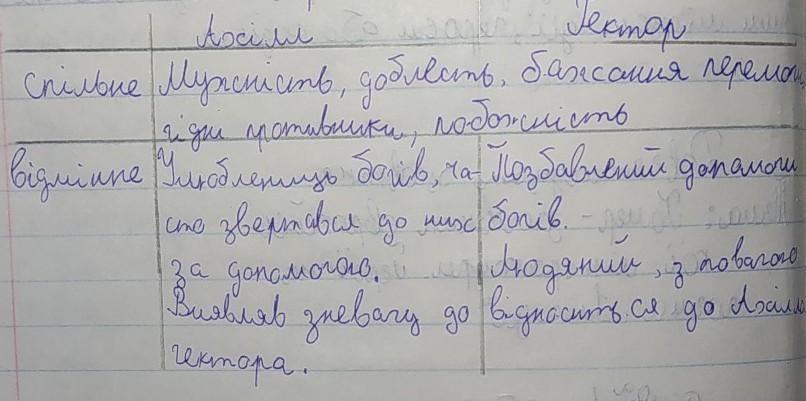 Ахілл Гектор
спільне Мужність, доблесть, бажання перемоги,
гідні противники, побожність
відмінне Улюбленець богів, ча- Позбавлений допомоги
сто звертався до них богів.
за допомогою. Людяний, з повагою
Виявляв зневагу до відноситься до Ахілла
гектора.